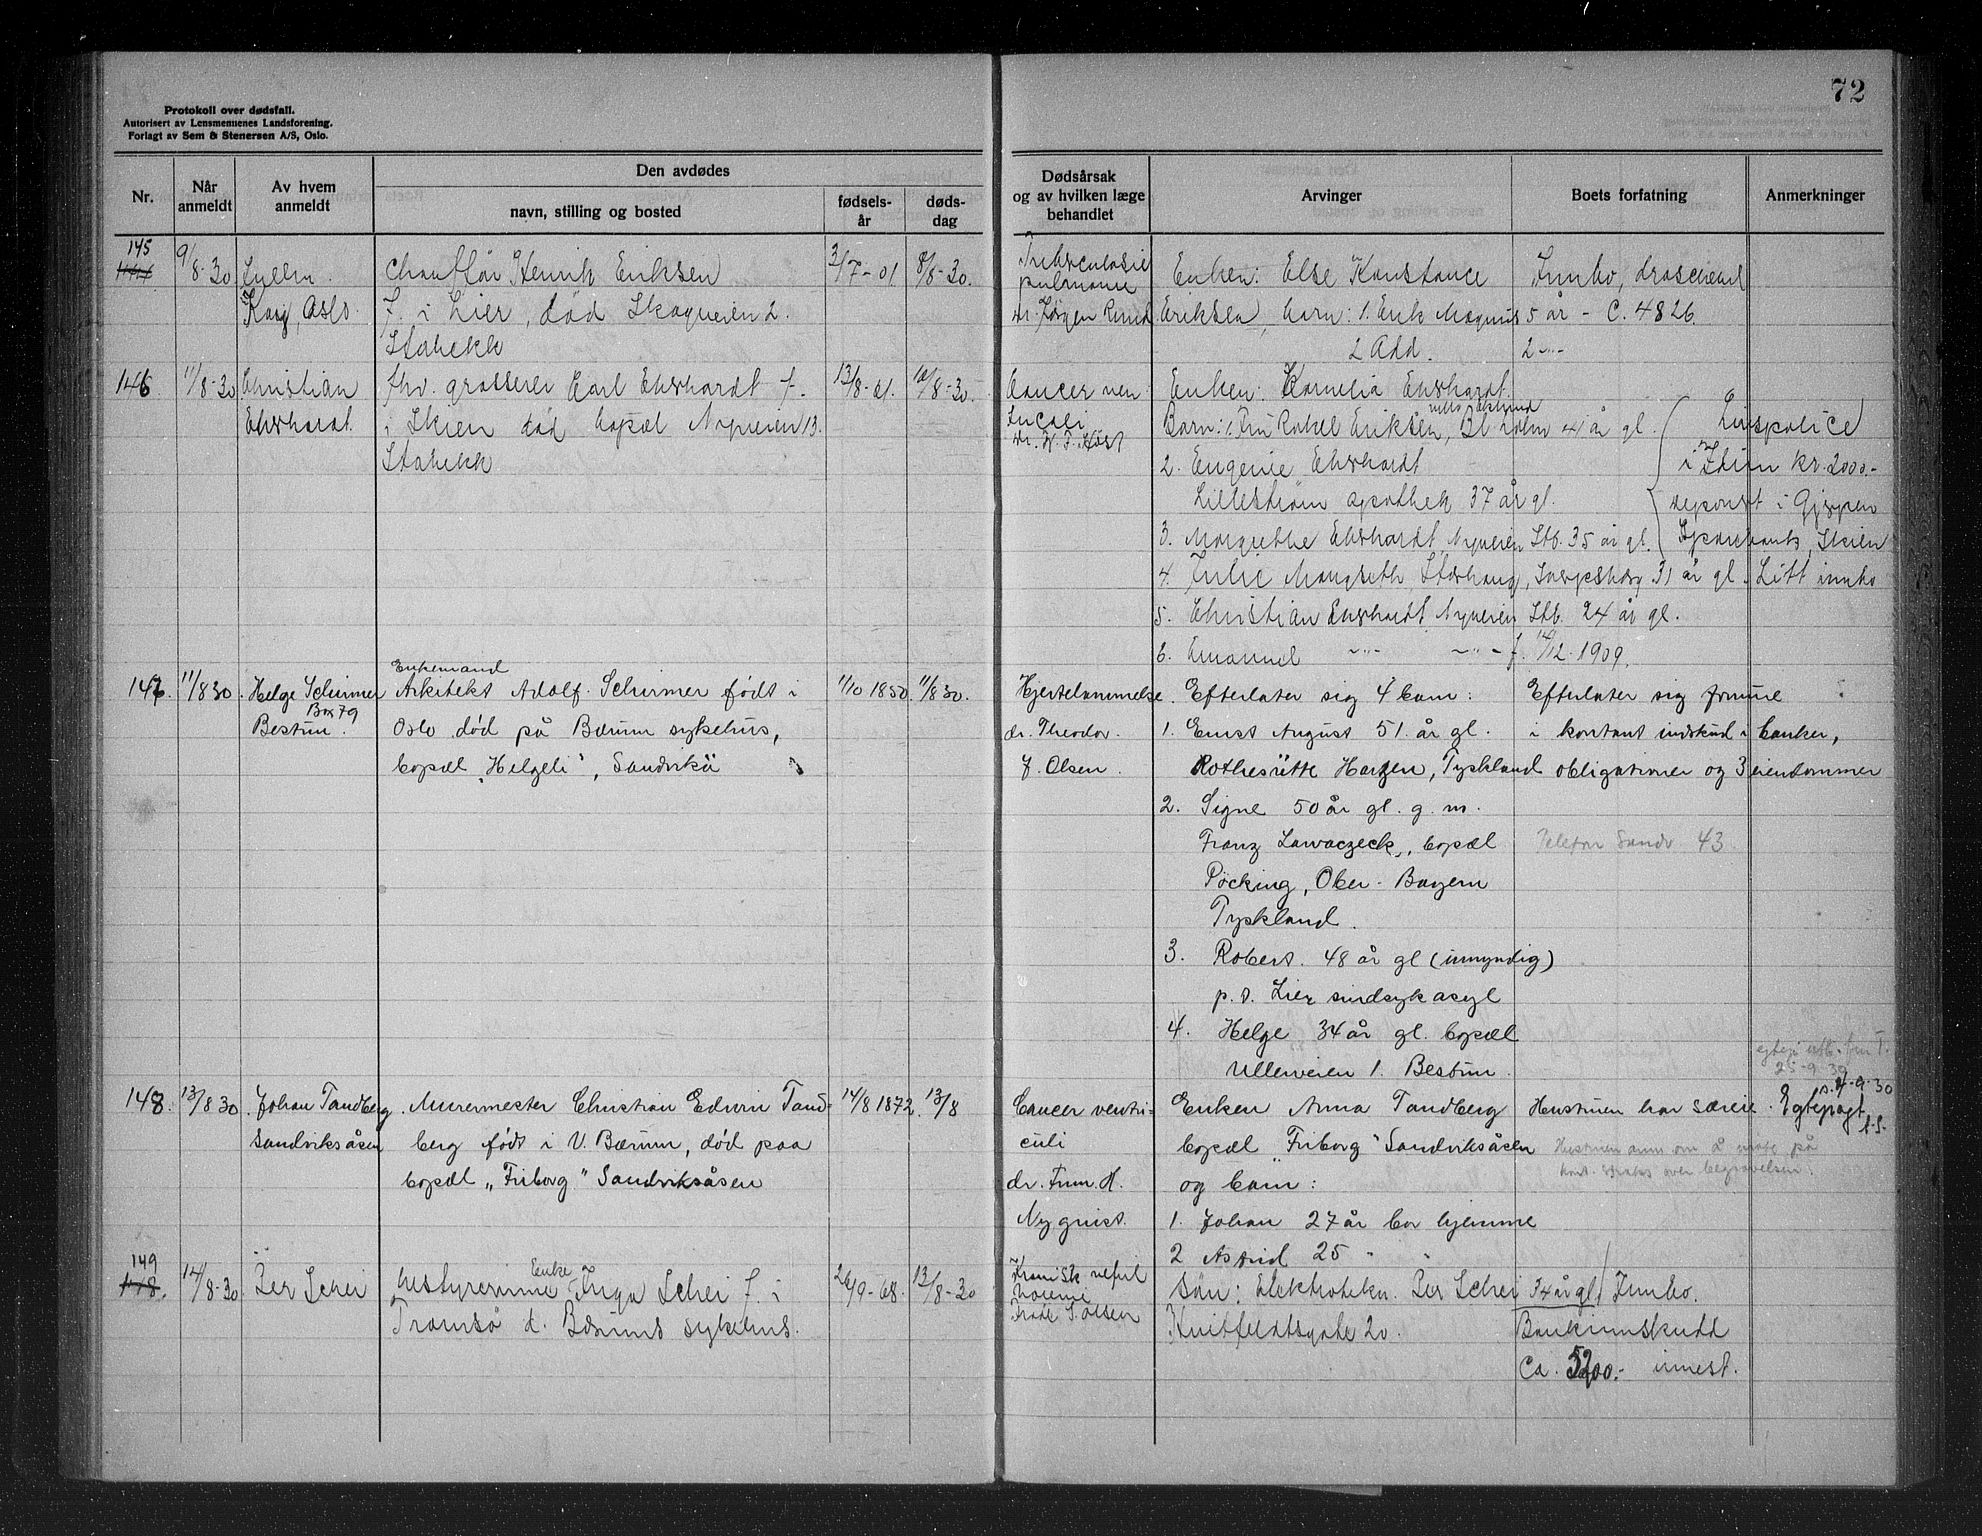 72
Protokoll over dødsfall.
Autorisert av Lensmennenes Landsforening.
Forlagt av Sem & Stenersen A/S, Oslo.
Nr.
Når anmeldt
Av hvem anmeldt
Den avdødes
navn, stilling og bosted
fødsels-år
døds-dag
Dødsårsak og av hvilken læge behandlet
Arvinger
Boets forfatning
Anmerkninger
145
9/8-30
Oslo.
Chauffør Henrik Eriksen
f. i Lier, død
Stabekk
3/7-01
8/8-30.
Tuberculosis
dr. Jørgen
Enken: Else Konstance
Eriksen, barn: 1. Erik Magnus 5 år
2 Odd. 2 -"-
Innbo,
- C. 4826.
146
11/8-30
Christian
Ehrhardt.
fhv. grosserer Carl Ehrhardt f.
i Skien død bopæl Nyveien 13.
Stabekk
13/8-61.
10/8-30.
Cancer ven
dr.
Enken: Kornelia Ehrhardt.
Barn: 1. Fru Rakel Eriksen, 41 år gl.
2. Eugenie Ehrhardt
Lillestrøm apothek 37 år gl.
3. Margrethe Ehrhardt Nyveien Stb. 35 år gl.
4. Julie Sarpsborg 31 år gl.
5. Christian Ehrhardt Nyveien Stb. 24 år gl.
6. Emanuel -"- -"- f. 14/12-1909.
Livspolice
i Idun kr. 2000.-
deponert i Gjerpen
Sparebank, Skien
Litt innbo
147.
11/8 30.
Helge Schirmer
Box 79
Bestun.
Enkemand
Arkitekt Adolf Schirmer født i
Oslo død på Bærum sykehus,
bopæl „Helgeli", Sandvika
1/10 1850.
11/8 30.
Hjertelammelse.
dr. Theodor.
F. Olsen.
Efterlater sig 4 barn:
1. Ernst August 51. år gl.
Rotheshütte Harzen, Tyskland
2. Signe 50 år gl. g. m.
Franz Lawaczeck, bopæl
Pöcking, Ober-Bayern
Tyskland.
3. Robert. 48 år gl (umyndig)
p. t. Lier sindsykasyl
4. Helge 34 år gl. bopæl
Ullerveien 1. Bestun.
Efterlater sig formue
i kontant indskud i banker,
obligationer og 3 eiendommer
Telefon Sandv 43
148.
13/8 30
Johan Tandberg
Sandviksåsen
Murermester Christian Edvin Tand-
berg født i V. Bærum, død paa
bopæl „Friborg" Sandviksåsen
14/8 1872.
13/8
Cancer ventri-
culi
dr. Finn. H.
Nyquist.
Enken Anna Tandberg
bopæl „Friborg" Sandviksåsen
og barn:
1. Johan 27 år bor hjemme
2 Astrid 25 " "
Hustruen har særeie.
Hustruen anm om å møte på
kont. straks over begravelsen.
25-9-30
s. 4-9-30
Egtepagt
149
148.
14/8-30
Per Schei
Enke
bestyrerinne Inga Schei f. i
Tromsø d. Bærums sykehus.
26/9-68.
13/8-30
Kronisk nefrit
Olsen
Søn: Elektrotekn. Per Schei 34 år gl.
Huitfeldtsgate 20.
Innbo.
Bankinnskudd
Ca. 5200.- innest.